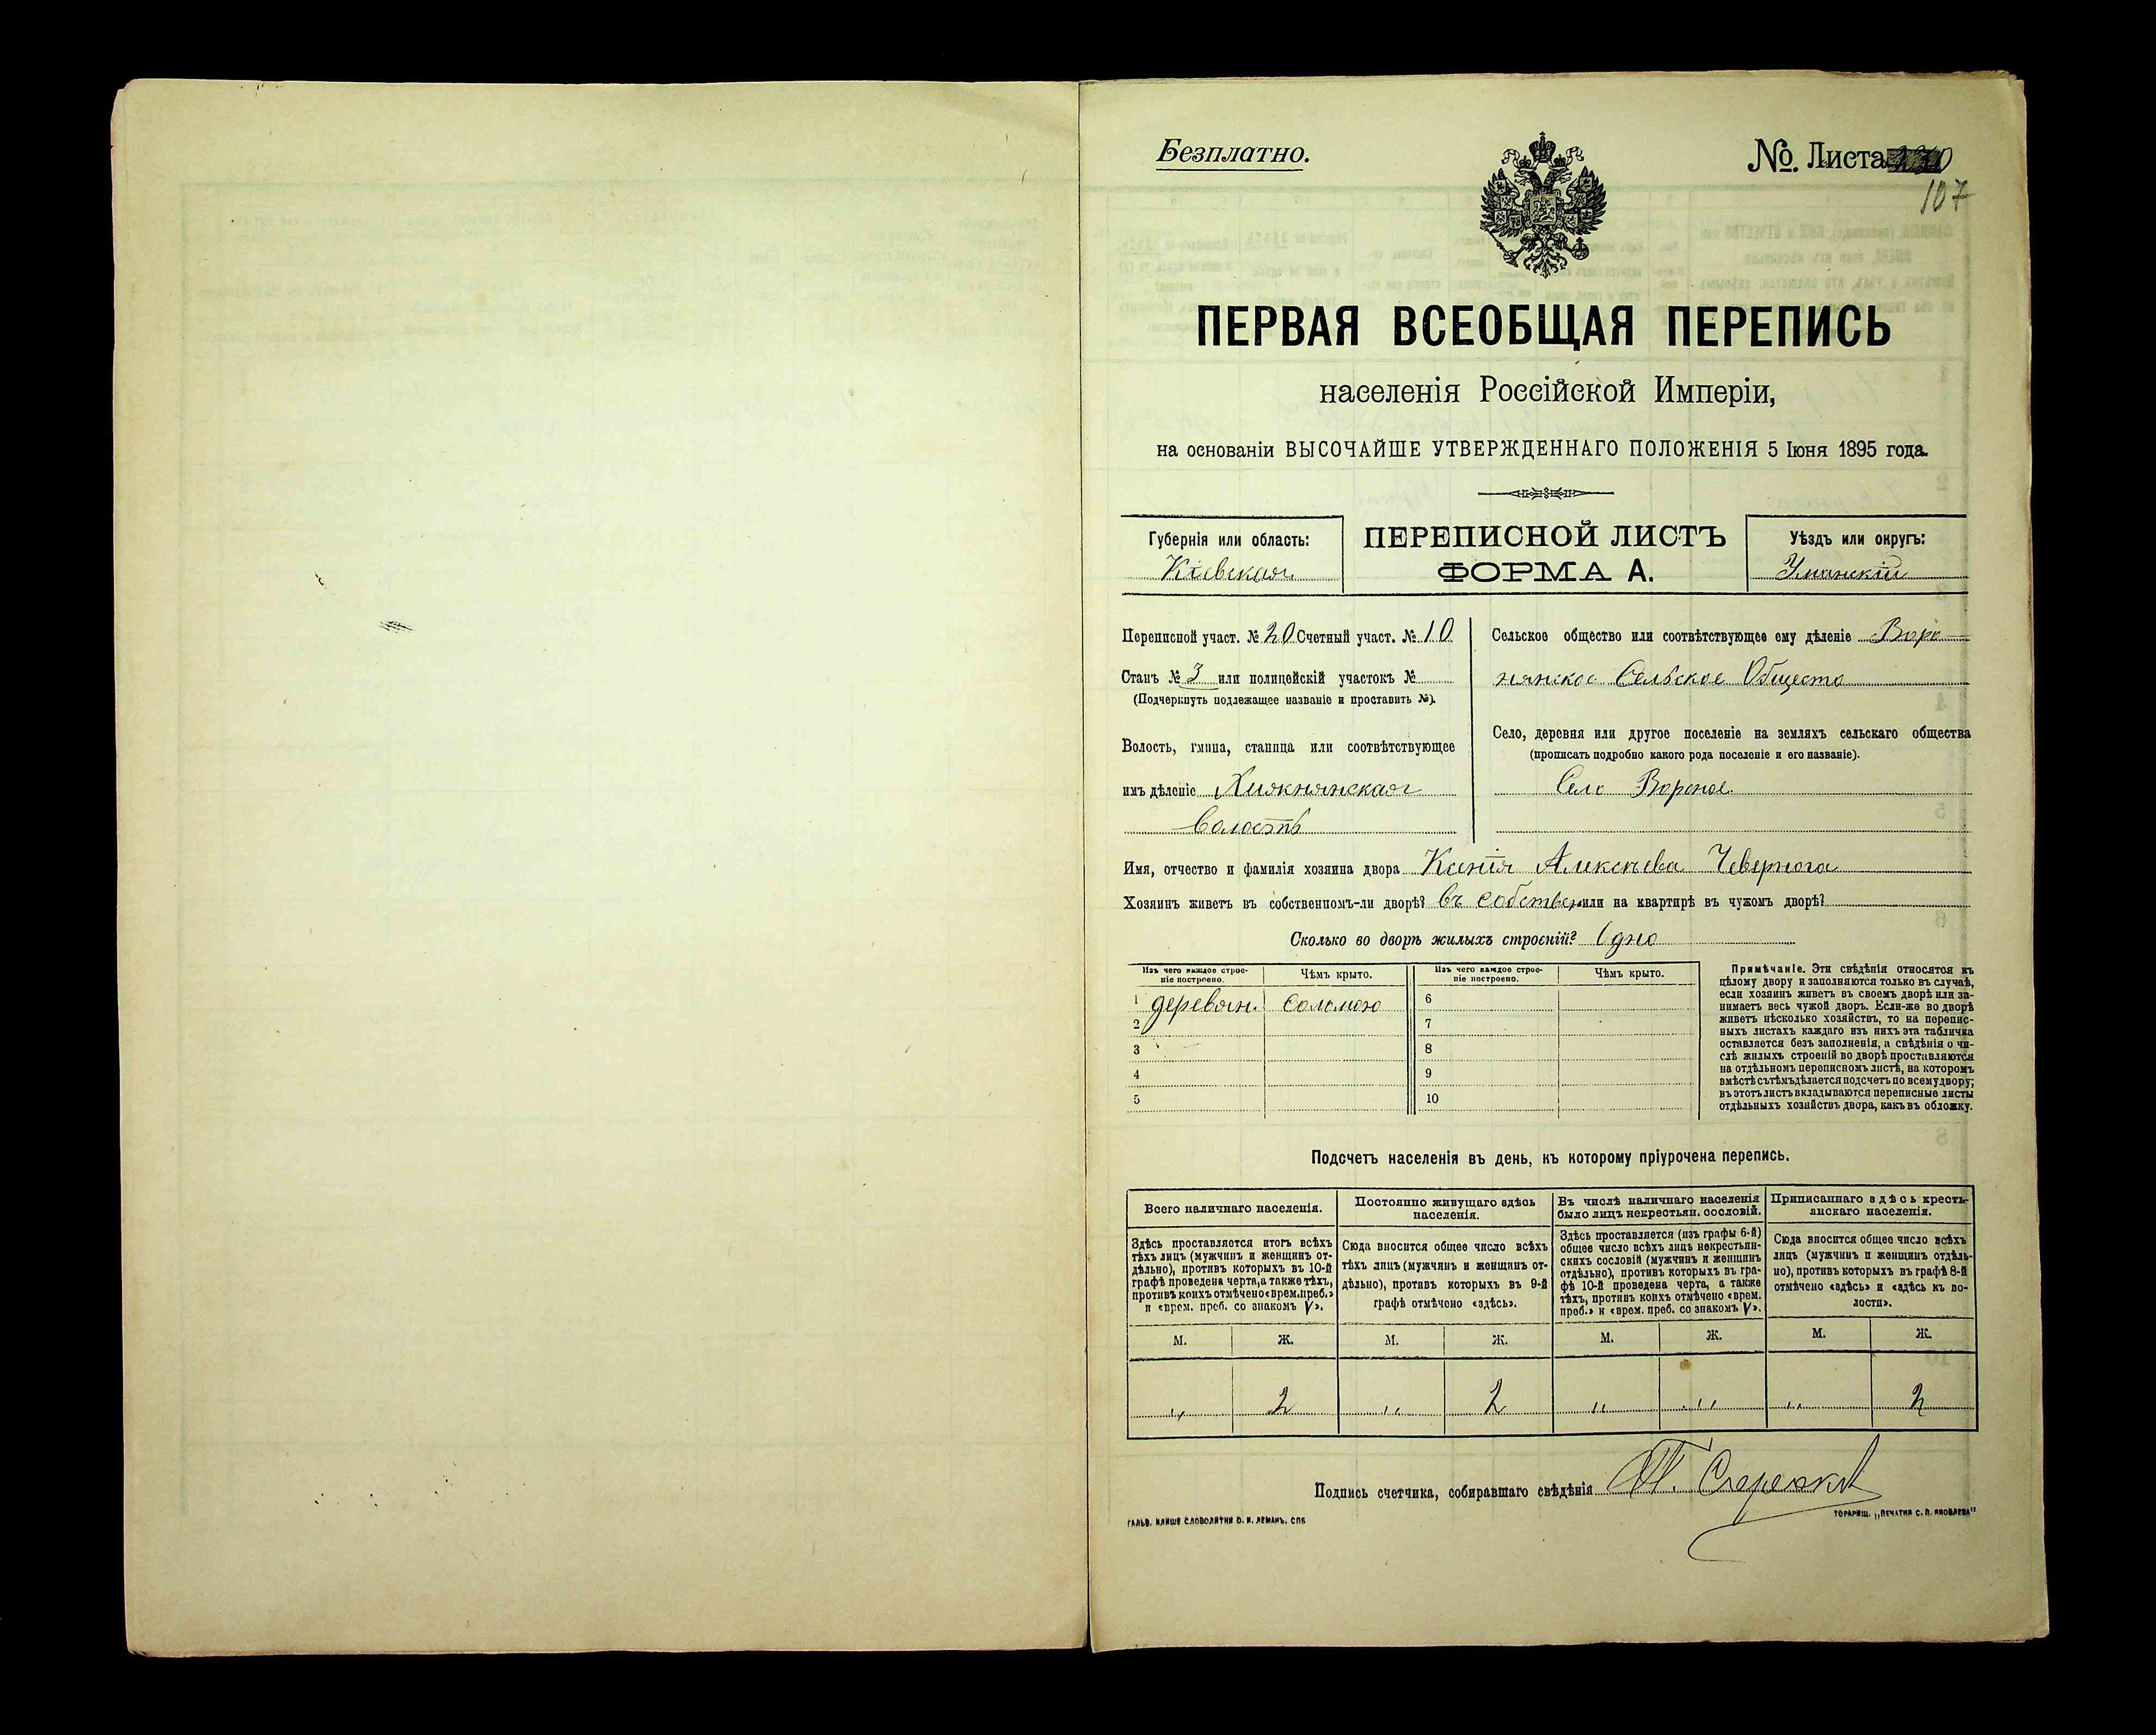 Безплатно.
№. Листа
107
ПЕРВАЯ ВСЕОБЩАЯ ПЕРЕПИСЬ
населенія Россійской Имперіи,
на основаніи ВЫСОЧАЙШЕ УТВЕРЖДЕННАГО ПОЛОЖЕНІЯ 5 Іюня 1895 года.
Губернія или область:
Кіевская
ПЕРЕПИСНОЙ ЛИСТЪ
ФОРМА А.
Уѣздъ или округъ:
Уманскій
Переписной участ. № 20 Счетный участ. № 10
Станъ № 3 или полицейскій участокъ №
(Подчеркнуть подлежащее названіе и проставить №).
Волость, гмина, станица или соотвѣтствующее
имъ дѣленіе Хижнянская
Волость
Сельское общество или соотвѣтствующее ему дѣленіе Воро
нянское Сельское Общество
Село, деревня или другое поселеніе на земляхъ сельскаго общества
(прописать подробно какого рода поселеніе и его названіе).
Село Вороное
Имя, отчество и фамилія хозяина двора Ксенія Алексѣева Чевернога
Хозяинъ живетъ въ собственномъ-ли дворѣ? въ собствен. или на квартирѣ въ чужомъ дворѣ?
Сколько во дворѣ жилыхъ строеній? Одно
Изъ чего каждое строе-
ніе построено.
Чѣмъ крыто.
Изъ чего каждое строе-
ніе построено.
Чѣмъ крыто.
1 деревян. Соломою 6
2 7
3 8
4 9
5 10
Примѣчаніе. Эти свѣдѣнія относятся къ
цѣлому двору и заполняются только въ случаѣ,
если хозяинъ живетъ въ своемъ дворѣ или за-
нимаетъ весь чужой дворъ. Если-же во дворѣ
живетъ нѣсколько хозяйствъ, то на перепис-
ныхъ листахъ каждаго изъ нихъ эта табличка
оставляется безъ заполненія, а свѣдѣнія о чи-
слѣ жилыхъ строеній во дворѣ проставляются
на отдѣльномъ переписномъ листѣ, на которомъ
вмѣстѣ съ тѣмъ дѣлается подсчетъ по всему двору;
въ этотъ листъ вкладываются переписные листы
отдѣльныхъ хозяйствъ двора, какъ въ обложку.
Подсчетъ населенія въ день, къ которому пріурочена перепись.
Всего наличнаго населенія.
Здѣсь проставляется итогъ всѣхъ
тѣхъ лицъ (мужчинъ и женщинъ от-
дѣльно), противъ которыхъ въ 10-й
графѣ проведена черта, а также тѣхъ,
противъ коихъ отмѣчено «врем. преб.»
и «врем. преб. со знакомъ V».
Постоянно живущаго здѣсь
населенія.
Сюда вносится общее число всѣхъ
тѣхъ лицъ (мужчинъ и женщинъ от-
дѣльно), противъ которыхъ въ 9-й
графѣ отмѣчено «здѣсь».
Въ числѣ наличнаго населенія
было лицъ некрестьян. сословій.
Здѣсь проставляется (изъ графы 6-й)
общее число всѣхъ лицъ некрестьян-
скихъ сословій (мужчинъ и женщинъ
отдѣльно), противъ которыхъ въ гра-
фѣ 10-й проведена черта, а также
тѣхъ, противъ коихъ отмѣчено «врем.
преб.» и «врем. преб. со знакомъ V».
Приписаннаго здѣсь кресть-
янскаго населенія.
Сюда вносится общее число всѣхъ
лицъ (мужчинъ и женщинъ отдѣль-
но), противъ которыхъ въ графѣ 8-й
отмѣчено «здѣсь» и «здѣсь къ во-
лости».
М. Ж. М. Ж. М. Ж. М. Ж.
" 2 " 2 " " " 2
Подпись счетчика, собиравшаго свѣдѣнія
ГАЛЬВ. КЛИШЕ СЛОВОЛИТНИ О. И. ЛЕМАНЪ. СПБ
ТОВАРИЩ. „ПЕЧАТНЯ С. П. ЯКОВЛЕВА"